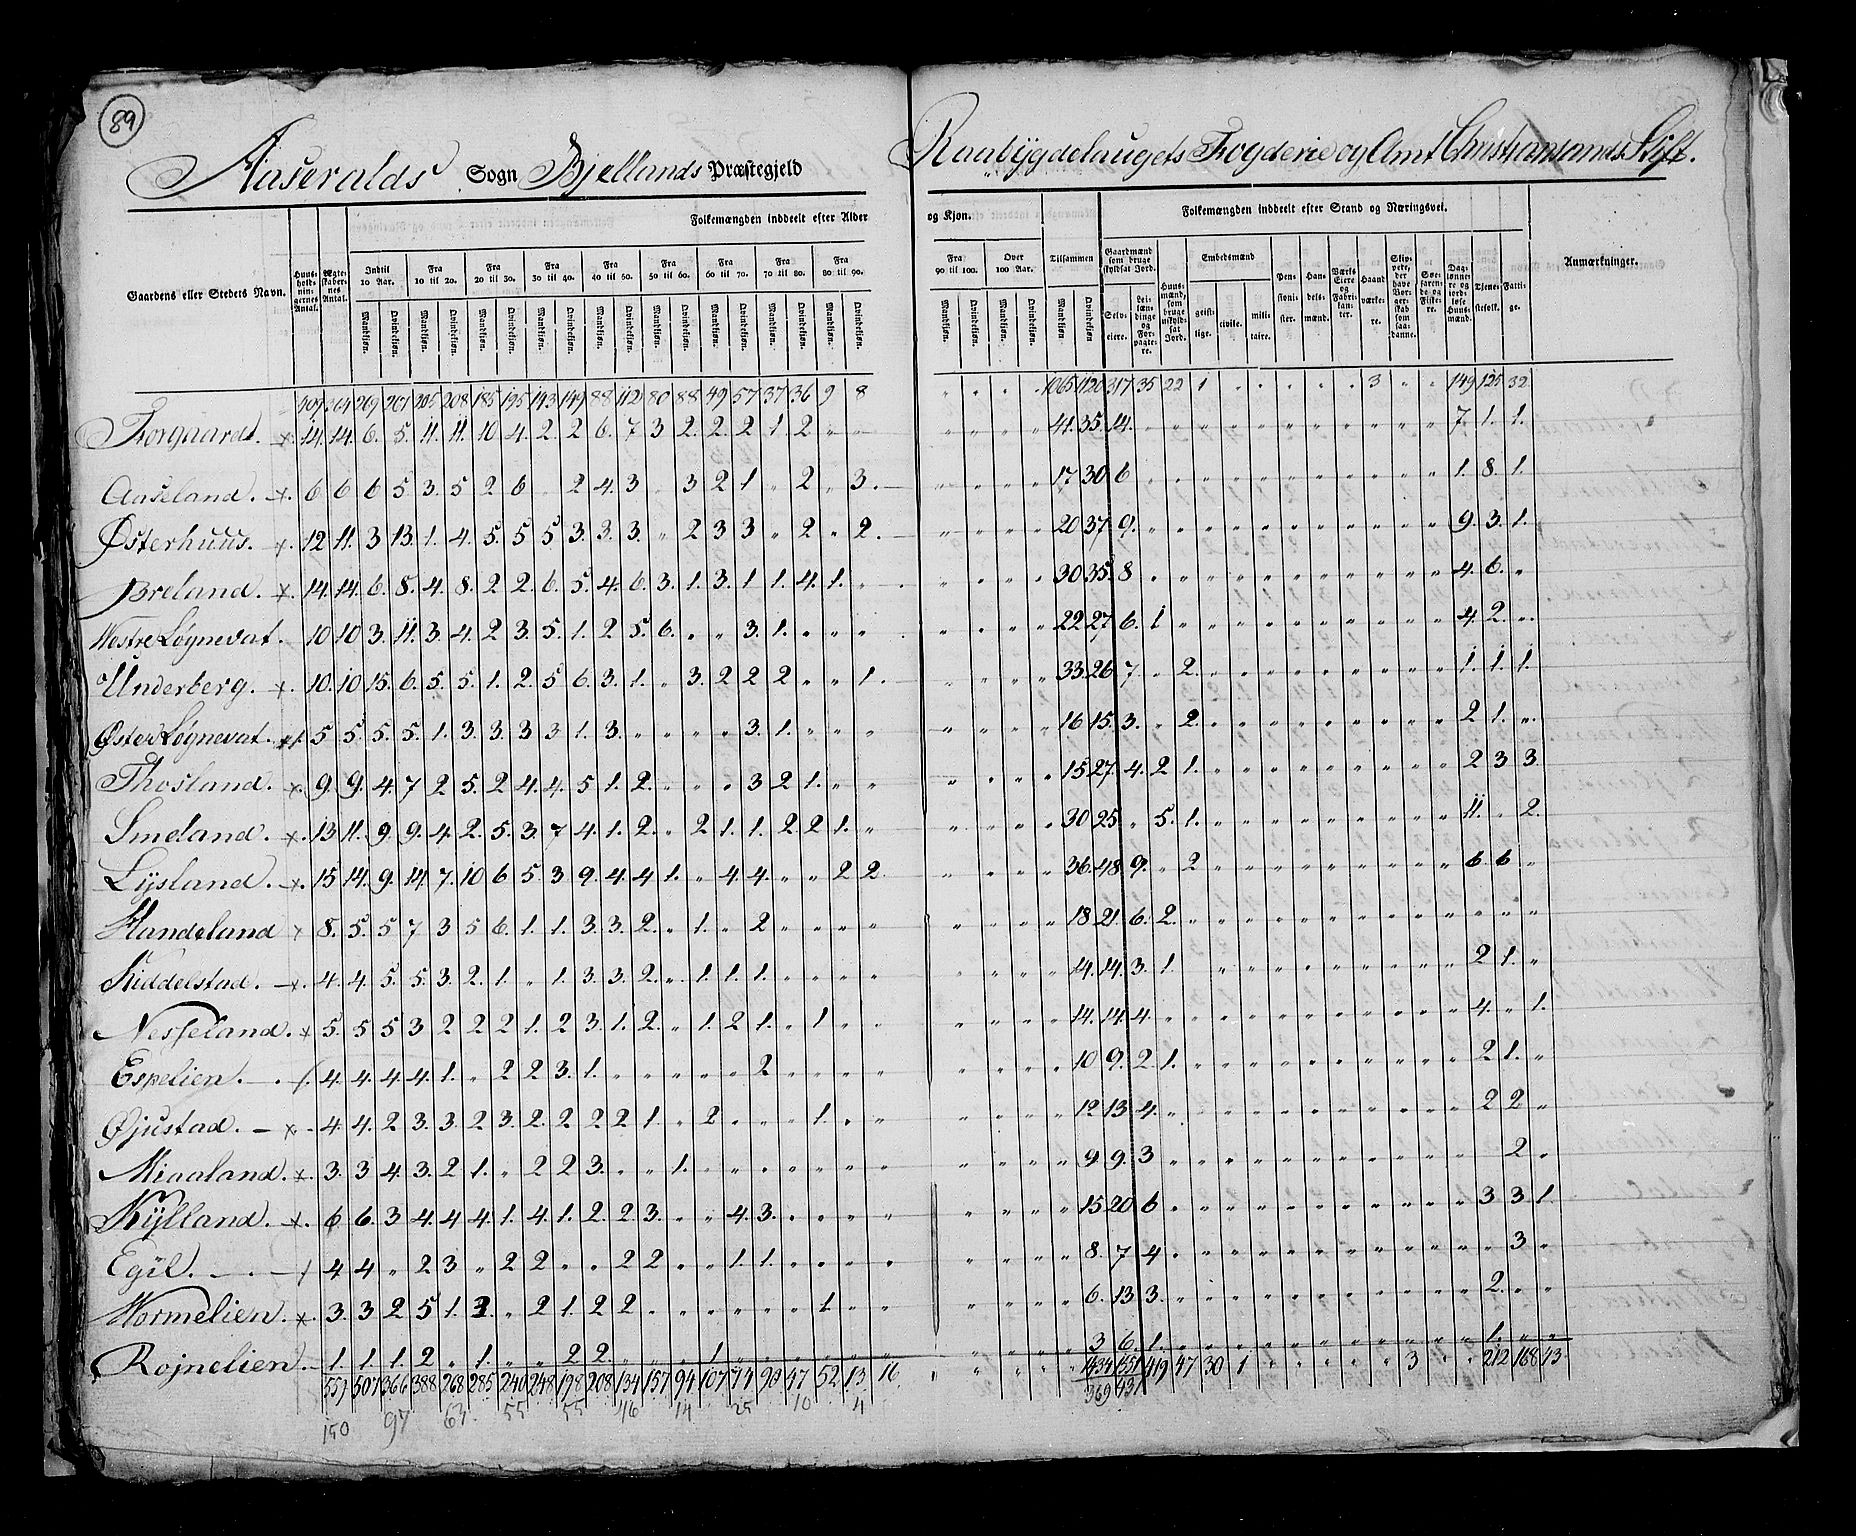 89
Aaseralds Sogn Bjellands Præstegjeld Raabygdelaugets Fogderie og Amt Christiansands Stift.
Gaardens eller Stedets Navn. Huus-holdnin-gernes Antal. Ægte-skaber-nes Antal. Folkemængden inddeelt efter Alder og Kjøn. Tilsammen Folkemængden inddeelt efter Stand og Næringsvei. Anmærkninger.
Indtil 10 Aar. Fra 10 til 20. Fra 20 til 30. Fra 30 til 40. Fra 40 til 50. Fra 50 til 60. Fra 60 til 70. Fra 70 til 80. Fra 80 til 90. Fra 90 til 100. Over 100 Aar.
Gaardmænd som bruge skyldsat Jord. Huus-mænd, som bruge uskyld-sat Jord. Embedsmænd Pen-sioni-ster. Han-dels-mænd. Værks Eiere og Fabri-kan-ter. Haand værke-re. Tjene-stefolk. Fatti-ge.
Selv-eiere. Lei-læn-dinge og For-pagte-re. geist-lige. civile. mili-taire.
Mandkjøn. Qvindekjøn. Mandkjøn. Qvindekjøn. Mandkjøn. Qvindekjøn. Mandkjøn. Qvindekjøn. Mandkjøn. Qvindekjøn. Mandkjøn. Qvindekjøn. Mandkjøn. Qvindekjøn. Mandkjøn. Qvindekjøn. Mandkjøn. Qvindekjøn. Mandkjøn. Qvindekjøn. Mandkjøn. Qvindekjøn. Mandkjøn. Qvindekjøn.
409 364 269 261 205 208 185 195 143 149 88 112 80 88 49 57 37 36 9 8 " " " " 1065 1120 317 35 22 1 3 149 125 32
Forgaardt. x. 14. 14. 6. 5. 11. 11. 10 4. 2. 2 6. 7 3 2. 2. 2 1. 2 " " 41. 35. 14. 7. 1. 1.
Aaseland. x. 6 6 6 5. 3. 5 2 6 " 2 4. 3 " 3 2 1 " 2 " 3. 17 30 6 1. 8. 1.
Østerhuus. x. 12 11. 3 13. 1. 4. 5. 5 5 3. 3. 3. " 2 3 3 " 2 " 2. 20 37 9. 9. 3. 1.
Breland. x. 14. 14. 6. 8. 4. 8. 2 2. 6. 5. 4. 6. 3. 1. 3. 1 1. 4. 1. " 30 35. 8 4. 6. "
Westre Løgnevat. 10 10 3. 11. 3. 4. 2 3. 5. 1. 2 5. 6. " " 3. 1. " " " 22 27 6. 1 4. 2. "
Underberg. x. 10. 10 15. 6. 5. 5. 1. 2. 5 6. 3. 1. " 3. 2 2 2 " " 1. 33. 26. 7. " 2. 1. 1. 1.
Øster Løgnevat. x. 5 5. 5. 5. 1. 3. 3. 3 3 1. 3. " " " " 3. 1. " " " 16 15. 3. " 2. 2 1. "
Thosland. x. 9. 9. 4. 7 2 5. 2 4. 4. 5 1. 2. " " " 3 2 1. " " 15 27. 4. 2 1. 2 3 3
Smeland. x. 13 11. 9. 9. 4. 2. 5. 3. 7 4. 1. 2. " 2 1. 1. 2 2 1. " 30 25 " 5. 1. 11. " 2.
Lijsland. x. 15 14. 9. 14. 7. 10 6 5. 3 9. 4. 4 1. " 4. 4. " " 2 2. 36. 48 9. " 2 6 6 "
Handeland x 8. 5. 5 7 3 5 6. 1. 1. 3 3. 2. " 1. " 2 " " " " 18 21. 6. 2.
Kiddelstad. x. 4. 4 5. 5. 3 2. 1. " 1. 3 3. 2. " 1. 1. 1. " " " " 14. 14. 3. 1. 2 1. "
Nesseland. x 5. 5 5 3 2 2 2 1. 2 3. 1. 2. " 1. 2 1. " 1 " " 14. 14. 4. 4. " 1.
Espelien. 4. 4. 4. 4. 1. " 2 2 3. 1. " " " " " 2 " " " " 10 9. 2 1. 2 1. "
Øjustad. x. 4. 4. 2 3. 3. 2 3. 2. 2 2 2 1. " 2 " " " 1. " " 12 13 4. 2 2 "
Miaaland. x. 3. 3 4. 3. 2 1. " 2 2 3. " " 1. " " " " " " " 9 9. 3 2 "
Kijlland. x. 6 6. 3 4. 4 4. 1. 4. 1. 2. 2. 3. " " 4. 3. " " " " 15 20 6 3 3 1
Egil. 4 4 " 2 3 " 2 2 " " 2 2 " " 1. 1. " " " " 8. 7 4. 3 "
Wormelien. x. 3. 3 2 5 1. 3. " 2 1. 2 2 " " " " " " 1 " " 6. 13 3. 2. " "
Rojnelien. 1. 1. 1. 2 " 1. " " 2 2. " " " " 1 " " " " " 3 6. 1. 1. " "
559 507 366 388 268 285 240 248 198 208 134 157 94 107 74 90 47 52 13 16 1434 1551 419 47 30 1 3 212 168 43
369 431
150 97 63 55 55 46 14 25 10 4